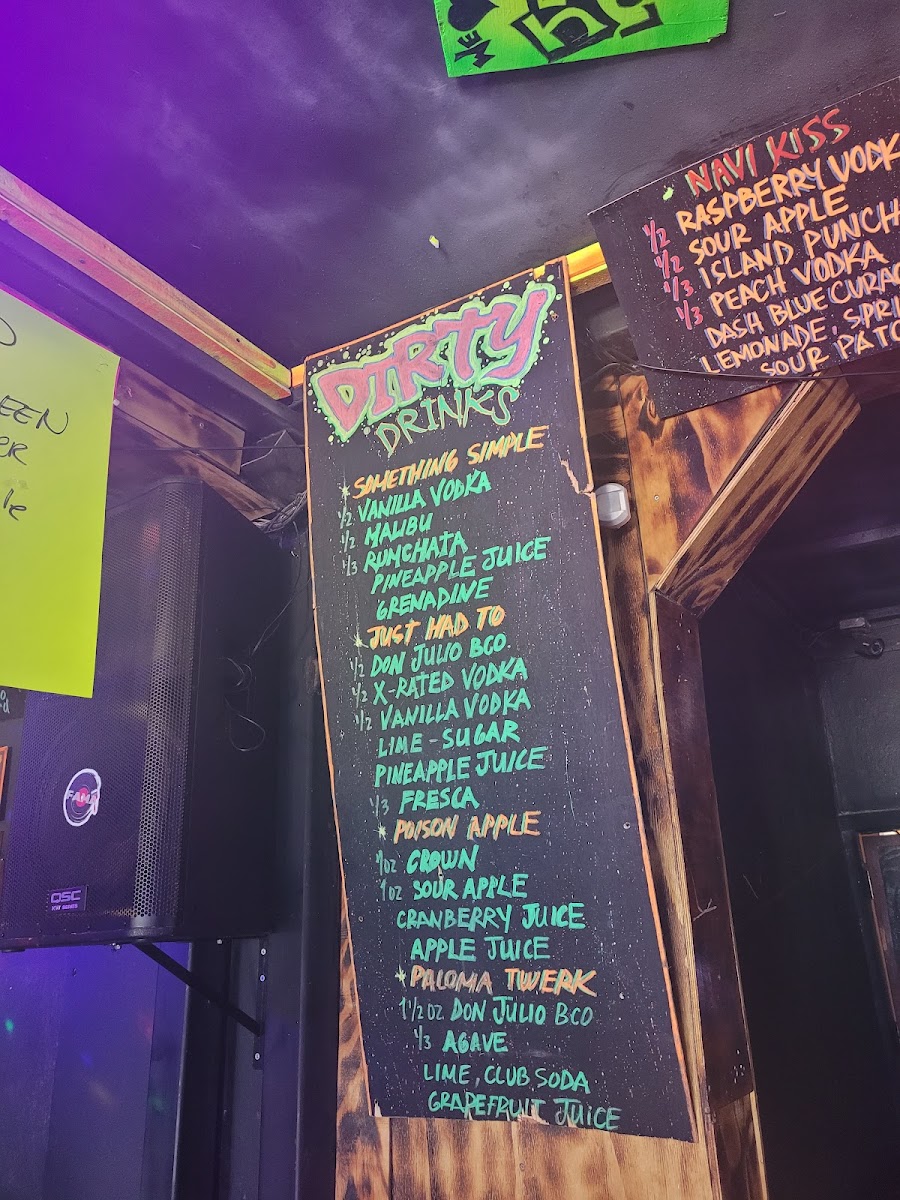 DIRTY
DRINKS
* SOMETHING SIMPLE
1/2 VANILLA VODKA
1/2 MALIBU
1/3 RUMCHATA
PINEAPPLE JUICE
GRENADINE
* JUST HAD TO
1/2 DON JULIO BCO.
1/2 X-RATED VODKA
1/2 VANILLA VODKA
LIME - SUGAR
PINEAPPLE JUICE
1/3 FRESCA
* POISON APPLE
1oz CROWN
1oz SOUR APPLE
CRANBERRY JUICE
APPLE JUICE
* PALOMA TWERK
1 1/2 oz DON JULIO BCO
1/3 AGAVE
LIME, CLUB SODA
GRAPEFRUIT JUICE
NAVI KISS
1/2 RASPBERRY VODK
1/2 SOUR APPLE
1/3 ISLAND PUNCH
1/3 PEACH VODKA
DASH BLUE CURAC
LEMONADE, SPRI
SOUR PATC
EEN
ER
le
QSC
KW SERIES